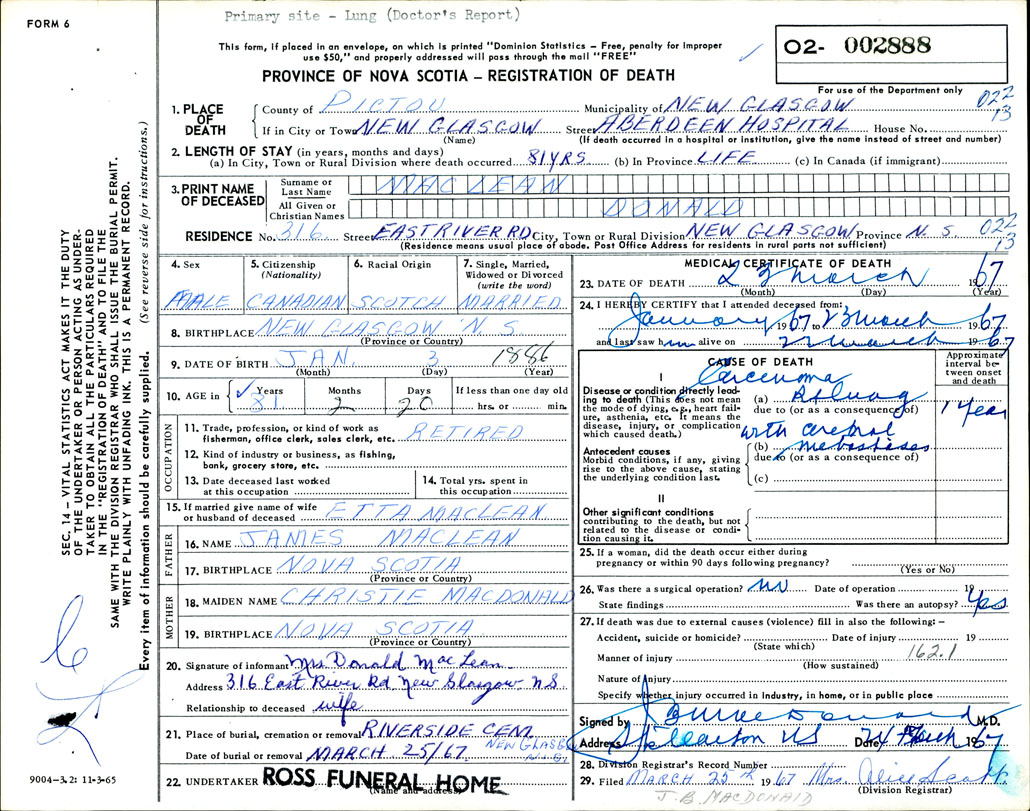 FORM 6
Primary site - Lung (Doctor's Report)
This form, if placed in an envelope, on which is printed "Dominion Statistics – Free, penalty for improper
use $50," and properly addressed will pass through the mail "FREE"
O2- 002888
PROVINCE OF NOVA SCOTIA – REGISTRATION OF DEATH
For use of the Department only
022
13
1. PLACE OF DEATH
County of PICTOU Municipality of NEW GLASGOW
If in City or Town NEW GLASGOW Street ABERDEEN HOSPITAL House No.
(Name) (If death occurred in a hospital or institution, give the name instead of street and number)
2. LENGTH OF STAY (in years, months and days)
(a) In City, Town or Rural Division where death occurred 81 YRS (b) In Province LIFE (c) In Canada (if immigrant)
3. PRINT NAME OF DECEASED
Surname or Last Name MACLEAN
All Given or Christian Names DONALD
RESIDENCE No. 316 Street EAST RIVER RD City, Town or Rural Division NEW GLASGOW Province N. S. 022
13
(Residence means usual place of abode. Post Office Address for residents in rural parts not sufficient)
4. Sex
MALE
5. Citizenship
(Nationality)
CANADIAN
6. Racial Origin
SCOTCH
7. Single, Married,
Widowed or Divorced
(write the word)
MARRIED
8. BIRTHPLACE NEW GLASGOW N. S.
(Province or Country)
9. DATE OF BIRTH JAN. 3 1886
(Month) (Day) (Year)
10. AGE in Years Months Days If less than one day old
81 2 20 hrs. or min.
OCCUPATION
11. Trade, profession, or kind of work as
fisherman, office clerk, sales clerk, etc. RETIRED
12. Kind of industry or business, as fishing,
bank, grocery store, etc.
13. Date deceased last worked
at this occupation
14. Total yrs. spent in
this occupation
15. If married give name of wife
or husband of deceased ETTA MACLEAN
FATHER
16. NAME JAMES MACLEAN
17. BIRTHPLACE NOVA SCOTIA
(Province or Country)
MOTHER
18. MAIDEN NAME CHRISTIE MACDONALD
19. BIRTHPLACE NOVA SCOTIA
(Province or Country)
20. Signature of informant Mrs Donald MacLean
Address 316 East River Rd New Glasgow NS
Relationship to deceased wife
21. Place of burial, cremation or removal RIVERSIDE CEM.
NEW GLASGOW
Date of burial or removal MARCH 25/67
22. UNDERTAKER ROSS FUNERAL HOME
(Name and address)
MEDICAL CERTIFICATE OF DEATH
23. DATE OF DEATH 23 March 1967
(Month) (Day) (Year)
24. I HEREBY CERTIFY that I attended deceased from:
January 1967 to 23 March 1967
and last saw him alive on March 1967
CAUSE OF DEATH
Approximate
interval be-
tween onset
and death
I
Disease or condition directly lead-
ing to death (This does not mean
the mode of dying, e.g., heart fail-
ure, asthenia, etc. It means the
disease, injury, or complication
which caused death.)
Carcinoma
(a) R Lung 1 Year
due to (or as a consequence of)
with cerebral
(b) metastases
due to (or as a consequence of)
(c)
Antecedent causes
Morbid conditions, if any, giving
rise to the above cause, stating
the underlying condition last.
II
Other significant conditions
contributing to the death, but not
related to the disease or condi-
tion causing it.
25. If a woman, did the death occur either during
pregnancy or within 90 days following pregnancy?
(Yes or No)
26. Was there a surgical operation? no Date of operation 19
State findings Was there an autopsy? Yes
27. If death was due to external causes (violence) fill in also the following: –
Accident, suicide or homicide? Date of injury 19
(State which)
Manner of injury 162.1
(How sustained)
Nature of Injury
Specify whether injury occurred in industry, in home, or in public place
Signed by M.D.
Address Stellarton NS Date 24 March 1967
28. Division Registrar's Record Number
29. Filed MARCH 25th 1967 Mrs. Alice
(Division Registrar)
J. B. MACDONALD
SEC. 14 – VITAL STATISTICS ACT MAKES IT THE DUTY
OF THE UNDERTAKER OR PERSON ACTING AS UNDER-
TAKER TO OBTAIN ALL THE PARTICULARS REQUIRED
IN THE "REGISTRATION OF DEATH" AND TO FILE THE
SAME WITH THE DIVISION REGISTRAR WHO SHALL ISSUE THE BURIAL PERMIT.
WRITE PLAINLY WITH UNFADING INK. THIS IS A PERMANENT RECORD.
Every item of information should be carefully supplied. (See reverse side for instructions.)
9004-3.2: 11-3-65